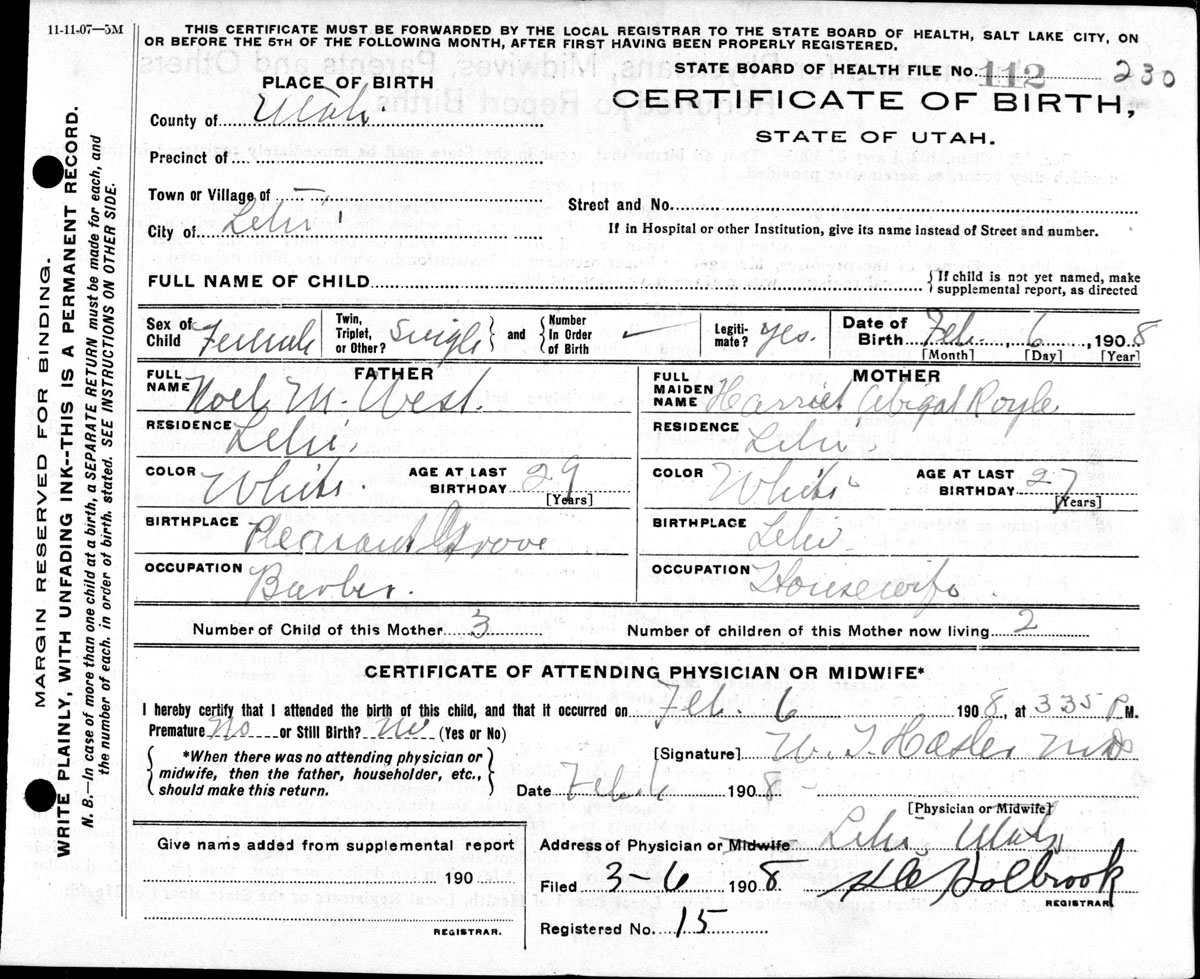 11-11-07—5M
THIS CERTIFICATE MUST BE FORWARDED BY THE LOCAL REGISTRAR TO THE STATE BOARD OF HEALTH, SALT LAKE CITY, ON
OR BEFORE THE 5TH OF THE FOLLOWING MONTH, AFTER FIRST HAVING BEEN PROPERLY REGISTERED.
STATE BOARD OF HEALTH FILE No. 112 230
CERTIFICATE OF BIRTH,
STATE OF UTAH.
PLACE OF BIRTH
County of Utah
Precinct of
Town or Village of —
City of Lehi
Street and No.
If in Hospital or other Institution, give its name instead of Street and number.
FULL NAME OF CHILD
{If child is not yet named, make
supplemental report, as directed
Sex of Child Female
Twin, Triplet, or Other? Single } and { Number In Order of Birth —
Legitimate? yes.
Date of Birth Feb. 6, 1908
[Month] [Day] [Year]
FATHER
FULL NAME Noel M. West.
RESIDENCE Lehi
COLOR White
AGE AT LAST BIRTHDAY 29
[Years]
BIRTHPLACE Pleasant Grove
OCCUPATION Barber.
MOTHER
FULL MAIDEN NAME Harriet Abigal Royle
RESIDENCE Lehi
COLOR White
AGE AT LAST BIRTHDAY 27
[Years]
BIRTHPLACE Lehi
OCCUPATION Housewife
Number of Child of this Mother 3
Number of children of this Mother now living 2
CERTIFICATE OF ATTENDING PHYSICIAN OR MIDWIFE*
I hereby certify that I attended the birth of this child, and that it occurred on Feb. 6 1908, at 335 P.M.
Premature No or Still Birth? No (Yes or No)
*When there was no attending physician or
midwife, then the father, householder, etc.,
should make this return.
[Signature] W. T. Hasler MD
Date Feb 1908
[Physician or Midwife]
Address of Physician or Midwife Lehi Utah
Filed 3-6 1908 Holbrook
REGISTRAR
Registered No. 15
Give name added from supplemental report
190
REGISTRAR.
MARGIN RESERVED FOR BINDING.
WRITE PLAINLY, WITH UNFADING INK--THIS IS A PERMANENT RECORD.
N. B.—In case of more than one child at a birth, a SEPARATE RETURN must be made for each, and
the number of each. in order of birth. stated. SEE INSTRUCTIONS ON OTHER SIDE.